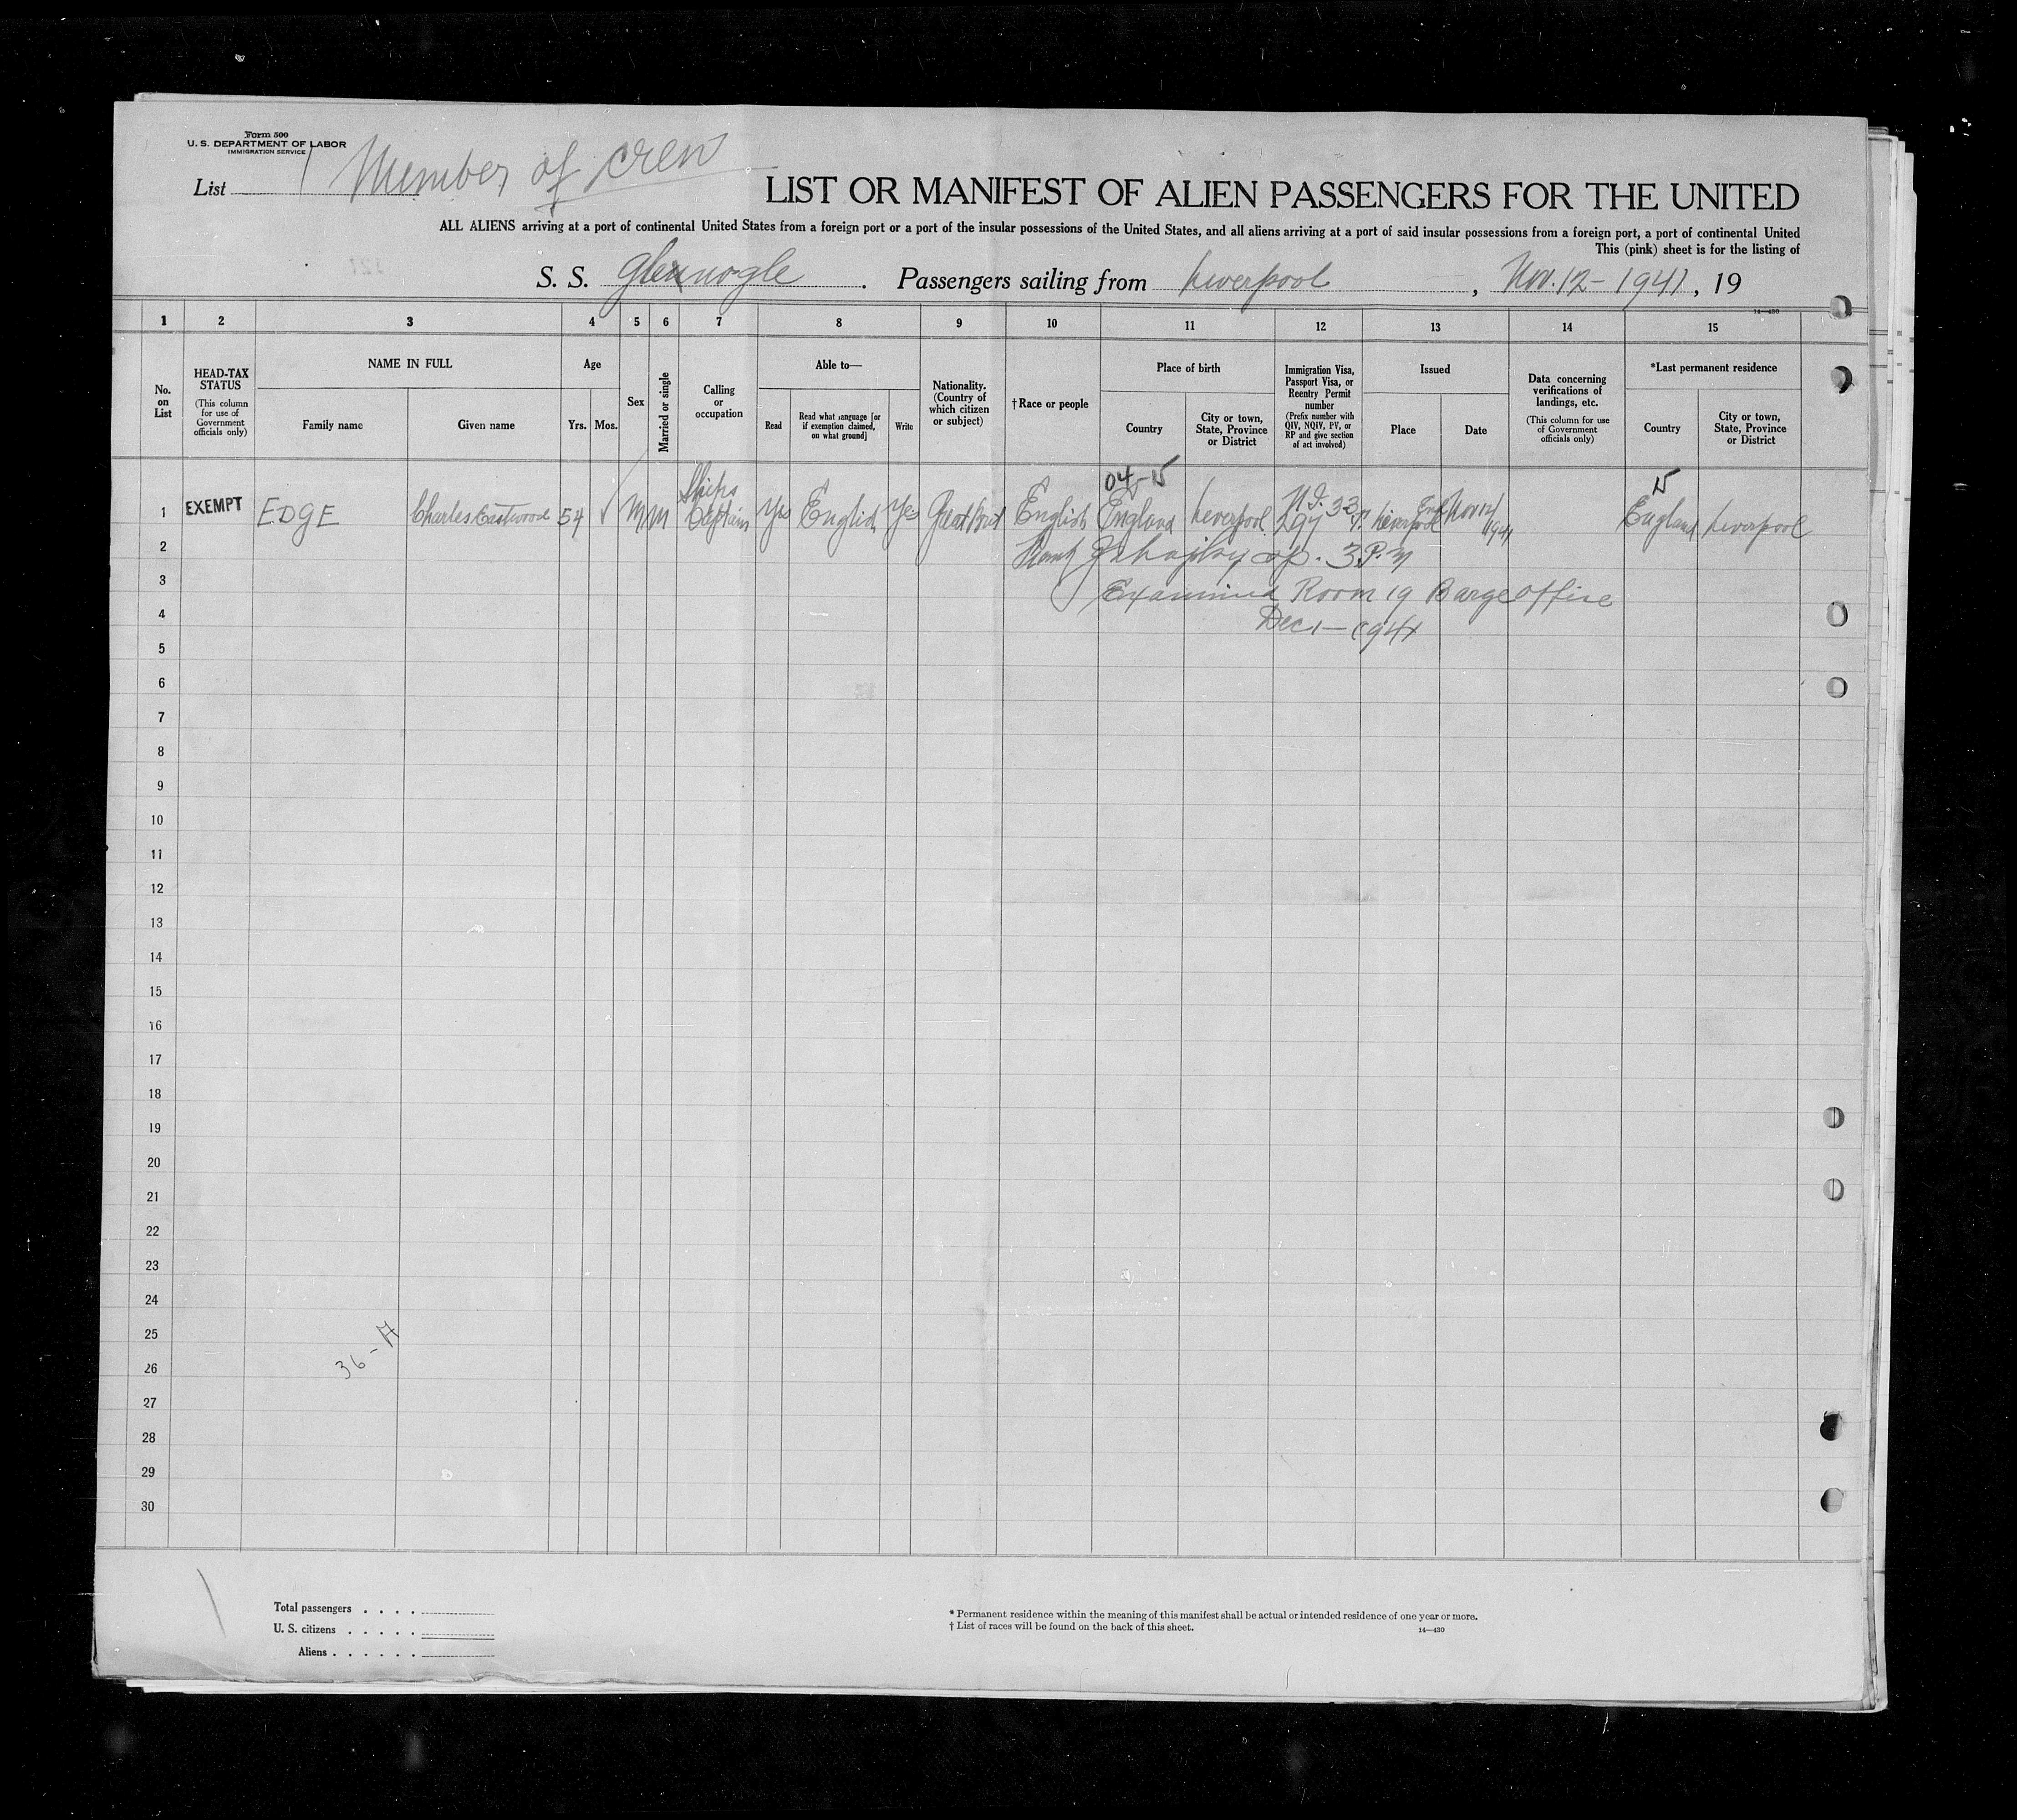 Form 500
U. S. DEPARTMENT OF LABOR
IMMIGRATION SERVICE
List 1 Member of crew
LIST OR MANIFEST OF ALIEN PASSENGERS FOR THE UNITED
ALL ALIENS arriving at a port of continental United States from a foreign port or a port of the insular possessions of the United States, and all aliens arriving at a port of said insular possessions from a foreign port, a port of continental United
This (pink) sheet is for the listing of
S. S. Glennogle . Passengers sailing from Liverpool , Nov. 12 - 1941, 19
14—430
1 2 3 4 5 6 7 8 9 10 11 12 13 14 15
No. on List
HEAD-TAX STATUS
(This column for use of Government officials only)
NAME IN FULL
Family name
Given name
Age
Yrs. Mos.
Sex
Married or single
Calling or occupation
Able to—
Read
Read what language [or if exemption claimed, on what ground]
Write
Nationality. (Country of which citizen or subject)
† Race or people
Place of birth
Country
City or town, State, Province or District
Immigration Visa, Passport Visa, or Reentry Permit number
(Prefix number with QIV, NQIV, PV, or RP and give section of act involved)
Issued
Place
Date
Data concerning verifications of landings, etc.
(This column for use of Government officials only)
*Last permanent residence
Country
City or town, State, Province or District
04-15
15
1 EXEMPT EDGE Charles Eastwood 54 ✓ M M Ships Captain Yes English Yes Great Brit English England Liverpool Liverpool England Liverpool
2 3 P.M
3 Examined Room 19 Barge office
4 Dec 1 - 1941
5
6
7
8
9
10
11
12
13
14
15
16
17
18
19
20
21
22
23
24
25
36-A
26
27
28
29
30
Total passengers . . . .
U. S. citizens . . . . .
Aliens . . . . . .
* Permanent residence within the meaning of this manifest shall be actual or intended residence of one year or more.
† List of races will be found on the back of this sheet.
14—430